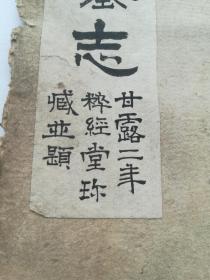 志
甘露二年
粹經堂珎
臧並題